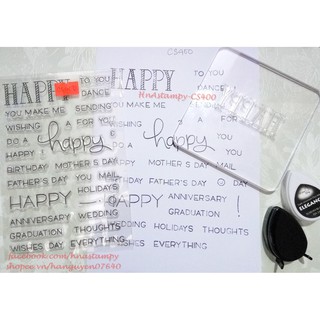 CS400
HAPPY TO YOU
DANCE
YOU MAKE ME SENDING
WISHING A FOR
DO A happy YOU
HAPPY !
BIRTHDAY MOTHER'S DAY
FATHER'S DAY YOU MAIL
HAPPY HOLIDAYS !
ANNIVERSARY WEDDING
GRADUATION THOUGHTS
WISHES DAY EVERYTHING
HAPPY TO YOU
DANCE
HndStampy-CS400
YOU MAKE ME SENDING
WISHING A FOR YOU
DO A happy YOU
HAPPY MOTHER'S DAY MAIL
BIRTHDAY
FATHER'S DAY YOU DAY
HAPPY ANNIVERSARY !
GRADUATION
WEDDING HOLIDAYS THOUGHTS
WISHES EVERYTHING
ELEGANC
facebook.com/hndstampy
shopee.vn/hanguyen07640